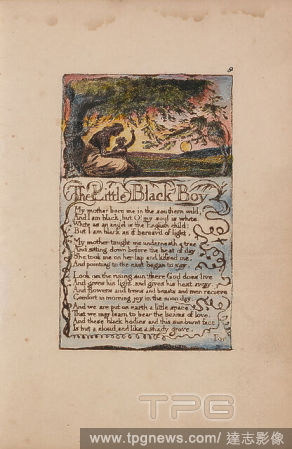 The Little Black Boy
My mother bore me in the southern wild,
And I am black, but O! my soul is white
White as an angel is the English child:
But I am black as if bereav'd of light.
My mother taught me underneath a tree
And sitting down before the heat of day,
She took me on her lap and kissed me,
And pointing to the east began to say.
Look on the rising sun: there God does live
And gives his light, and gives his heat away.
And flowers and trees and beasts and men recieve
Comfort in morning joy in the noon day.
And we are put on earth a little space,
That we may learn to bear the beams of love,
And these black bodies and this sun-burnt face
Is but a cloud, and like a shady grove.
For
TPG
www.tpgnews.com / 達志影像